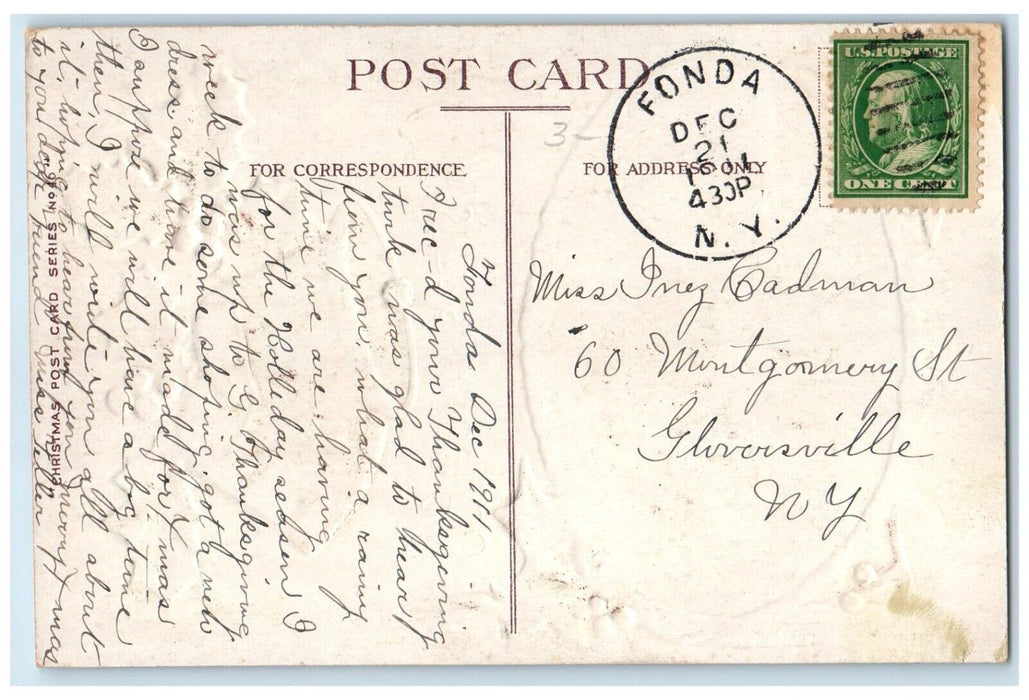 POST CARD
FOR CORRESPONDENCE
FOR ADDRESS ONLY
FONDA
DEC
21
1911
430P
N. Y.
U.S. POSTAGE
ONE CENT
3-
Miss Inez Cadman
60 Montgomery St
Gloversville
NY
Fonda Dec 1911
I rec-d your Thanksgiving
was glad to hear
from you, what a rainy
time we are having
for the Holleday seasen I
was up to G Thanksgiving
week to do some shoping, got a new
dress and have it made for Xmas
I suppose we will have a big time
then, I will write you all about
it, hoping to hear from you Xmas
to your friend
CHRISTMAS POST CARD SERIES No.